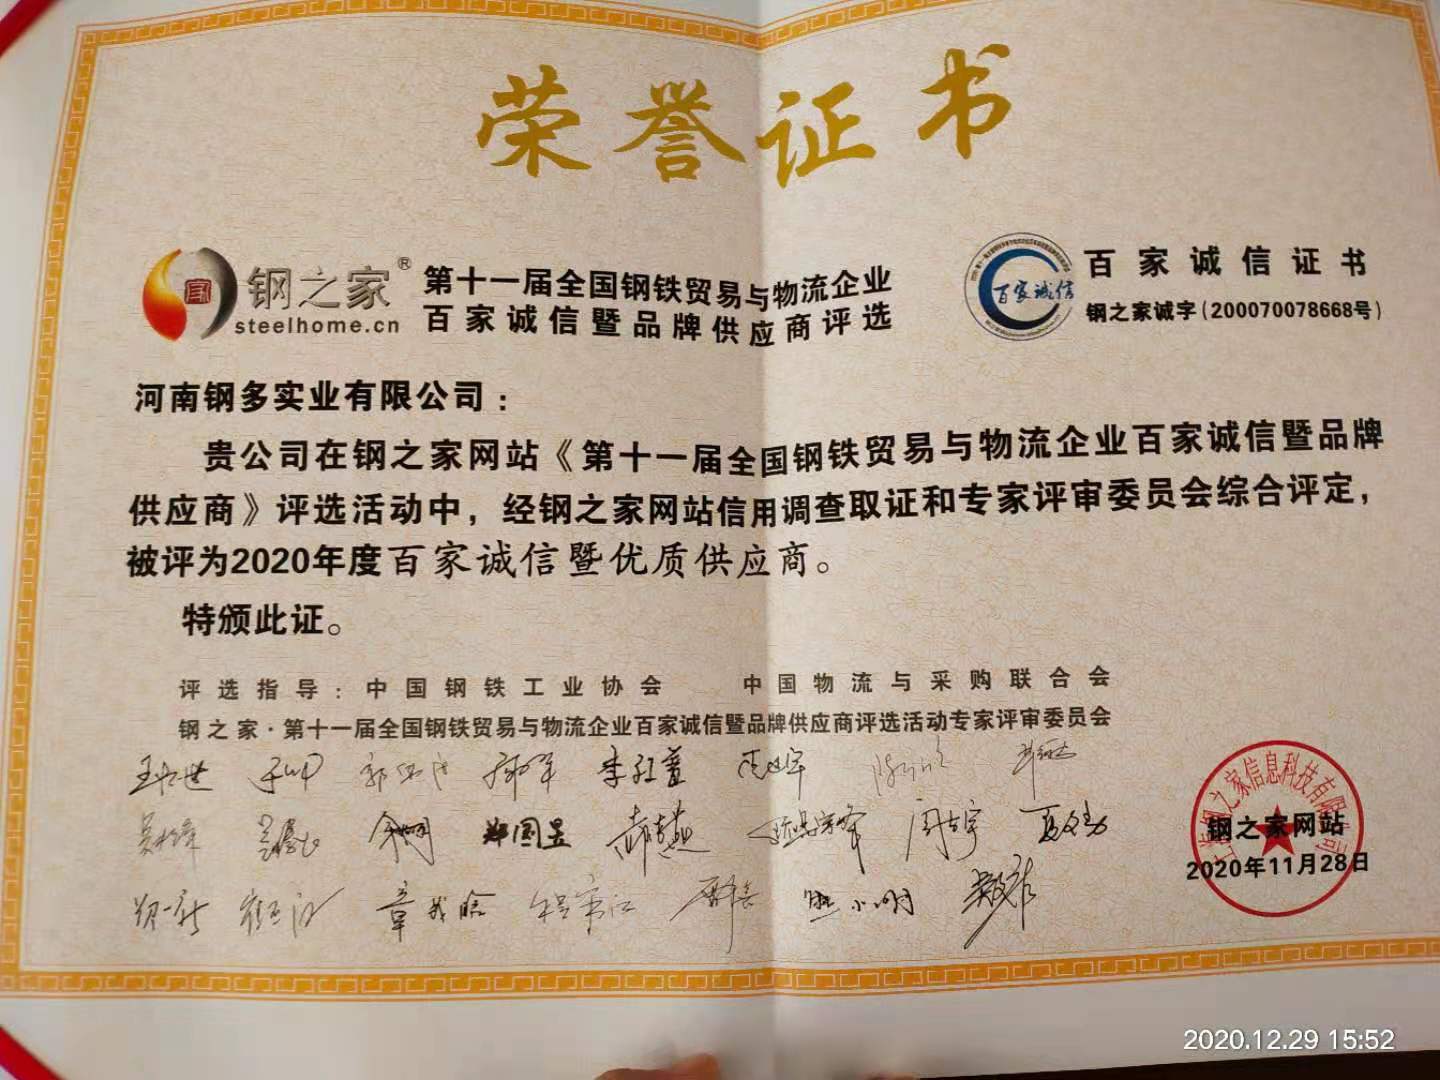 荣誉证书
钢之家®
steelhome.cn
第十一届全国钢铁贸易与物流企业
百家诚信暨品牌供应商评选
百家诚信
百家诚信证书
钢之家诚字(200070078668号)
河南钢多实业有限公司:
贵公司在钢之家网站《第十一届全国钢铁贸易与物流企业百家诚信暨品牌
供应商》评选活动中,经钢之家网站信用调查取证和专家评审委员会综合评定,
被评为2020年度百家诚信暨优质供应商。
特颁此证。
评选指导:中国钢铁工业协会 中国物流与采购联合会
钢之家·第十一届全国钢铁贸易与物流企业百家诚信暨品牌供应商评选活动专家评审委员会
上海钢之家信息科技有限公司
钢之家网站
2020年11月28日
2020.12.29 15:52